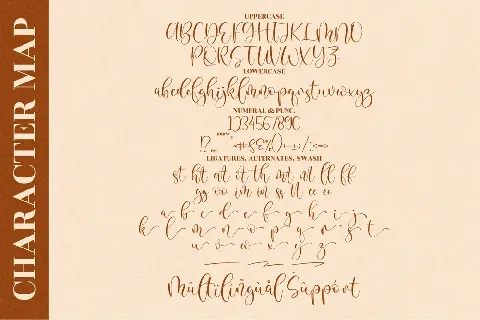 CHARACTER MAP
UPPERCASE
ABCDEFGHIJKLMNO
PQRSTUVWXYZ
LOWERCASE
abcdefghijklmnopqrstuvwxyz
NUMERAL & PUNC.
1234567890
LIGATURES, ALTERNATES, SWASH
st ht at it th mt nt ll ff
gg oo im in ss tt ee
a b c d e f g h i j
k l m n o p q r s t
u v w x y z
Múltilíñgùål Sùppórt